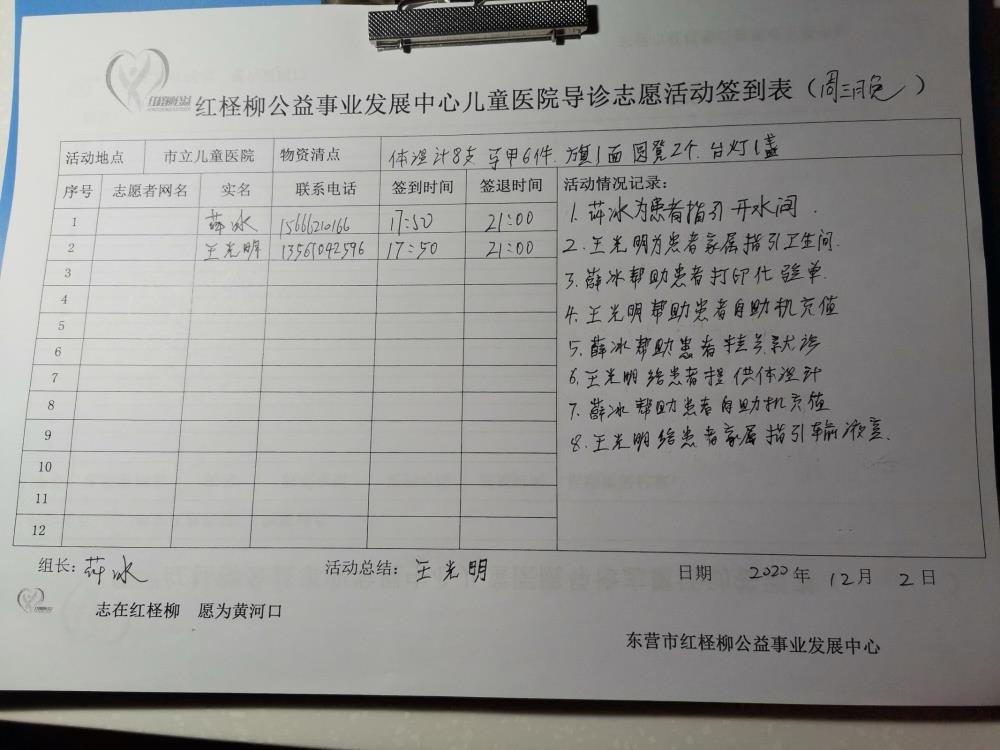 红柽柳公益事业发展中心儿童医院导诊志愿活动签到表（周三晚）
活动地点 市立儿童医院 物资清点 体温计8支 马甲6件 旗1面 圆凳2个 台灯1盏
序号 志愿者网名 实名 联系电话 签到时间 签退时间 活动情况记录：
1 薛冰 15666210166 17:50 21:00
2 王光明 13561042596 17:50 21:00
3
4
5
6
7
8
9
10
11
12
1. 薛冰为患者指引开水间.
2. 王光明为患者家属指引卫生间.
3. 薛冰帮助患者打印化验单.
4. 王光明帮助患者自助机充值
5. 薛冰帮助患者挂号就诊
6. 王光明给患者提供体温计
7. 薛冰帮助患者自助机充值
8. 王光明给患者家属指引输液室.
组长：薛冰 活动总结：王光明 日期 2020年 12月 2日
志在红柽柳 愿为黄河口
东营市红柽柳公益事业发展中心